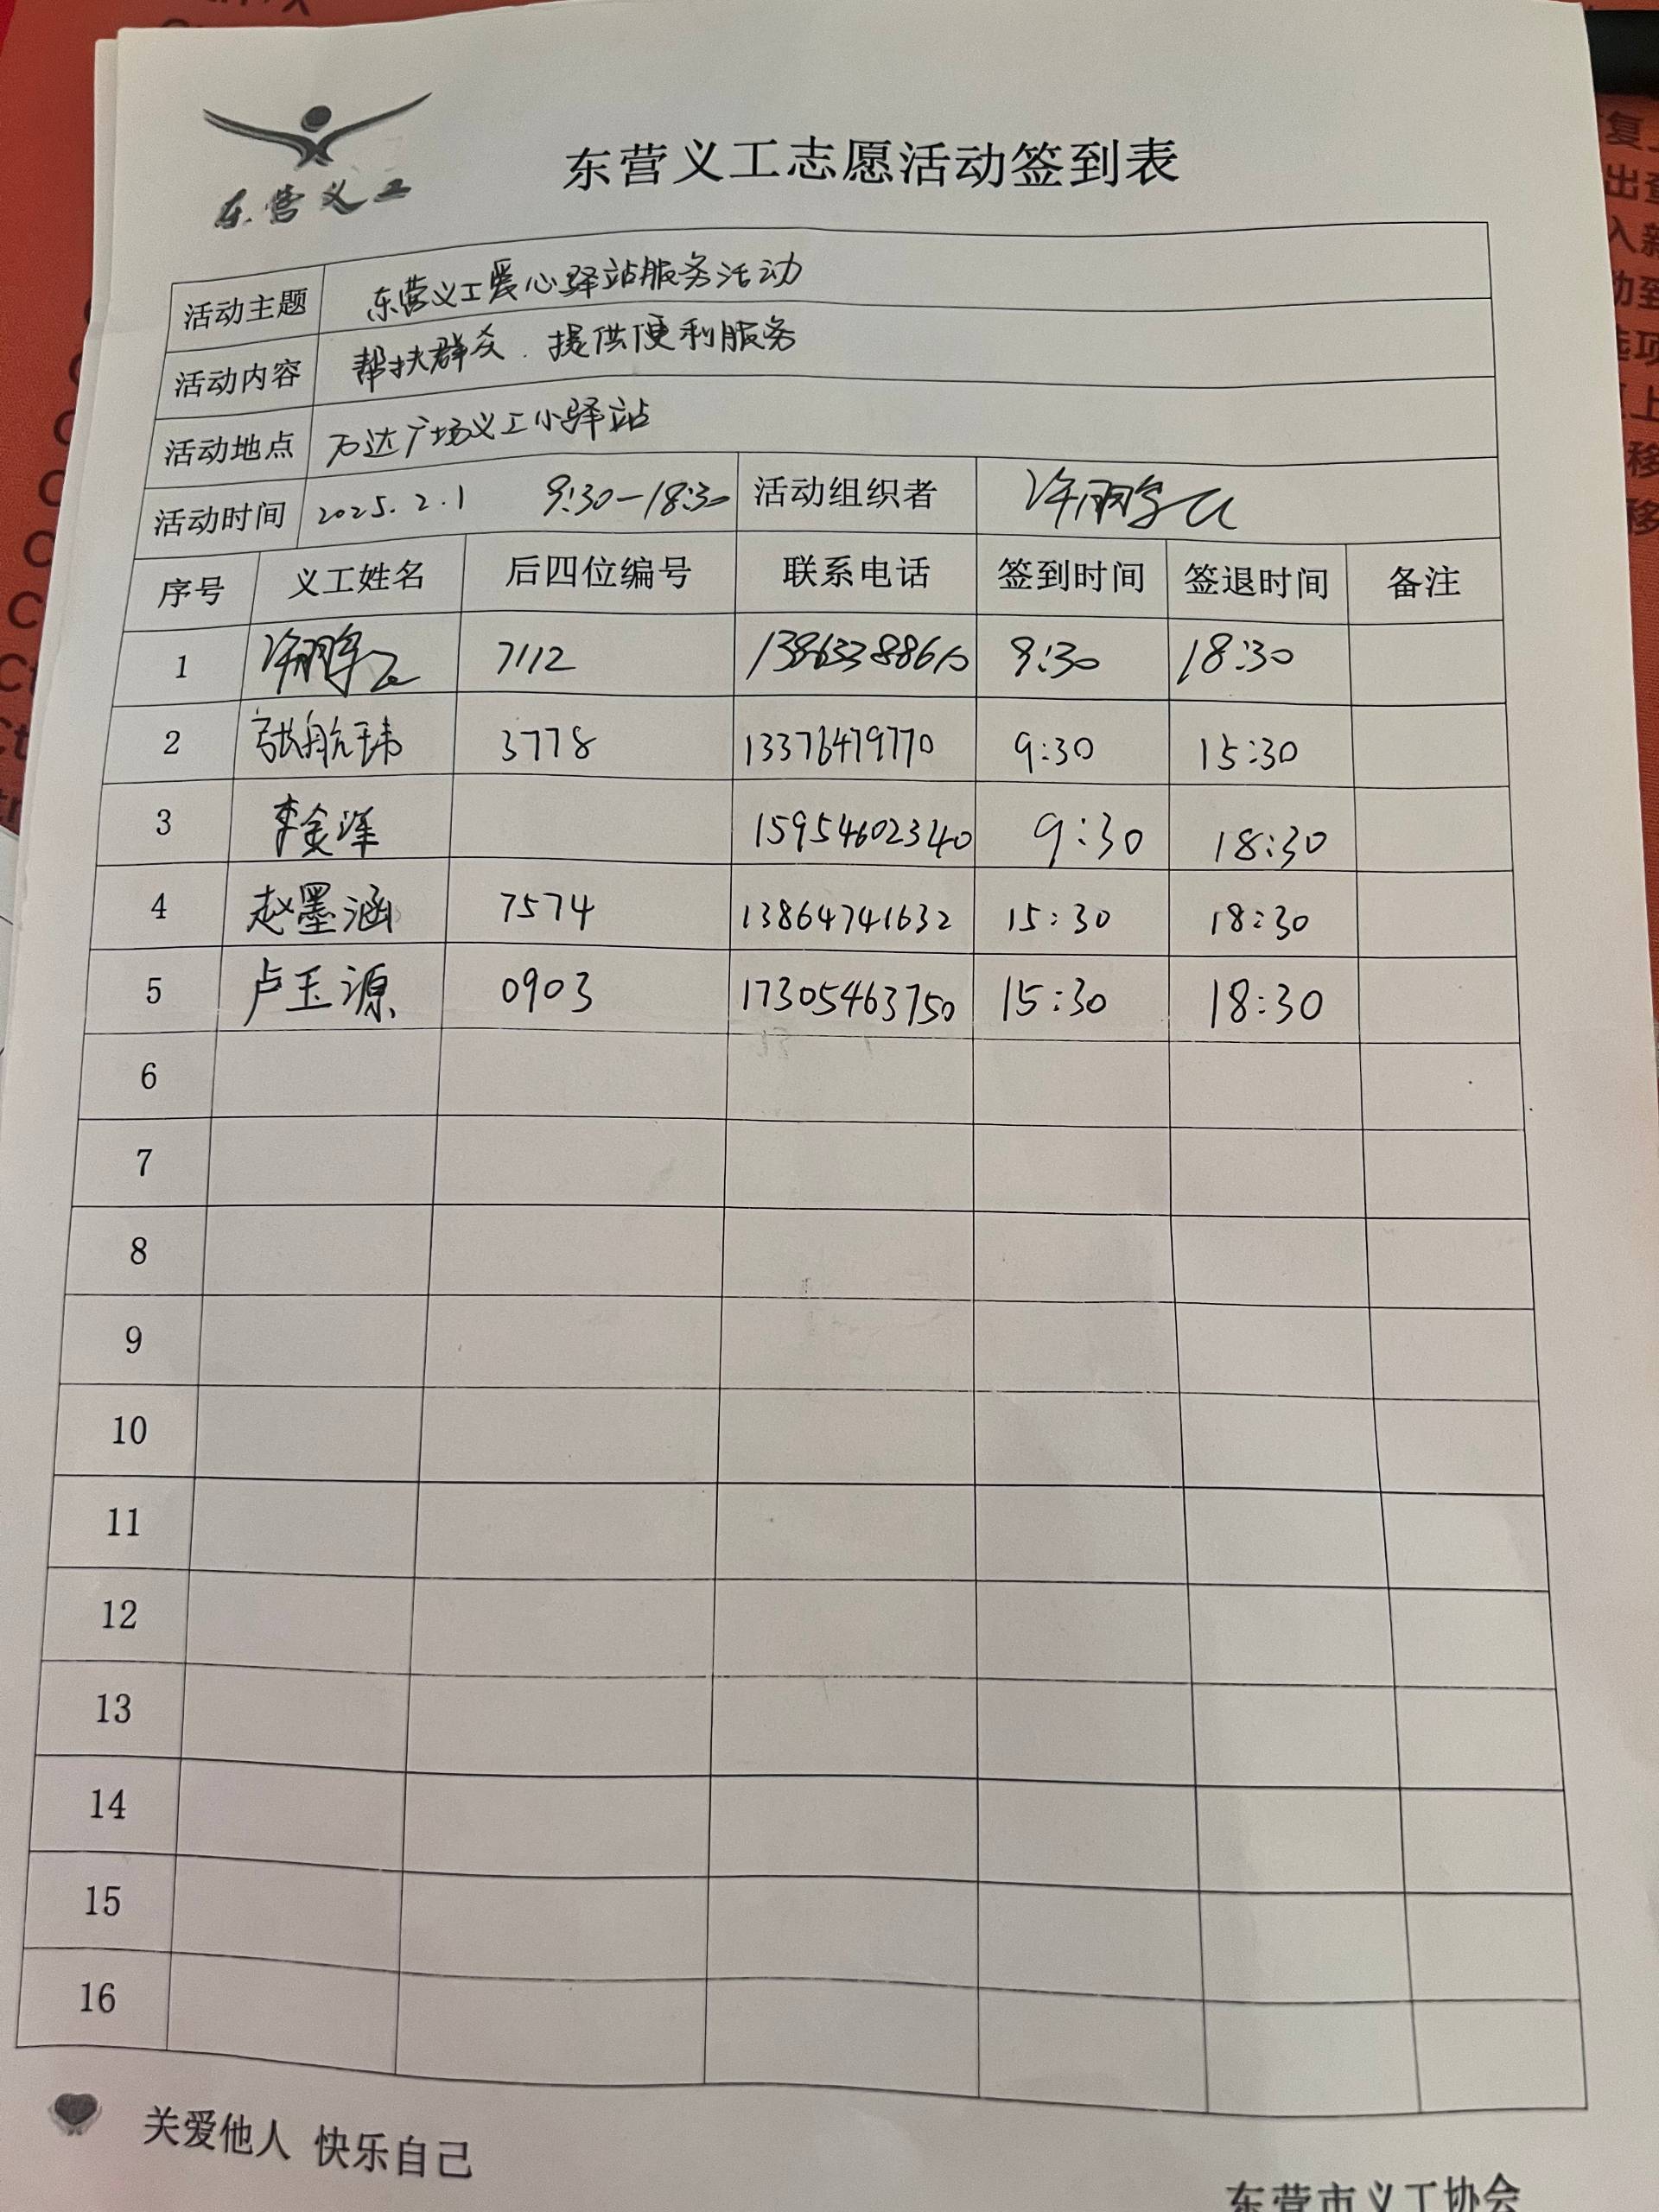 东营义工
东营义工志愿活动签到表
活动主题 东营义工爱心驿站服务活动
活动内容 帮扶群众. 提供便利服务
活动地点 万达广场义工小驿站
活动时间 2025.2.1 9:30-18:30 活动组织者
序号 义工姓名 后四位编号 联系电话 签到时间 签退时间 备注
1 7112 9:30 18:30
2 张航玮 3778 13376479770 9:30 15:30
3 李金泽 15954602340 9:30 18:30
4 赵墨涵 7574 13864741632 15:30 18:30
5 卢玉源 0903 17305463750 15:30 18:30
6
7
8
9
10
11
12
13
14
15
16
关爱他人 快乐自己
东营市义工协会